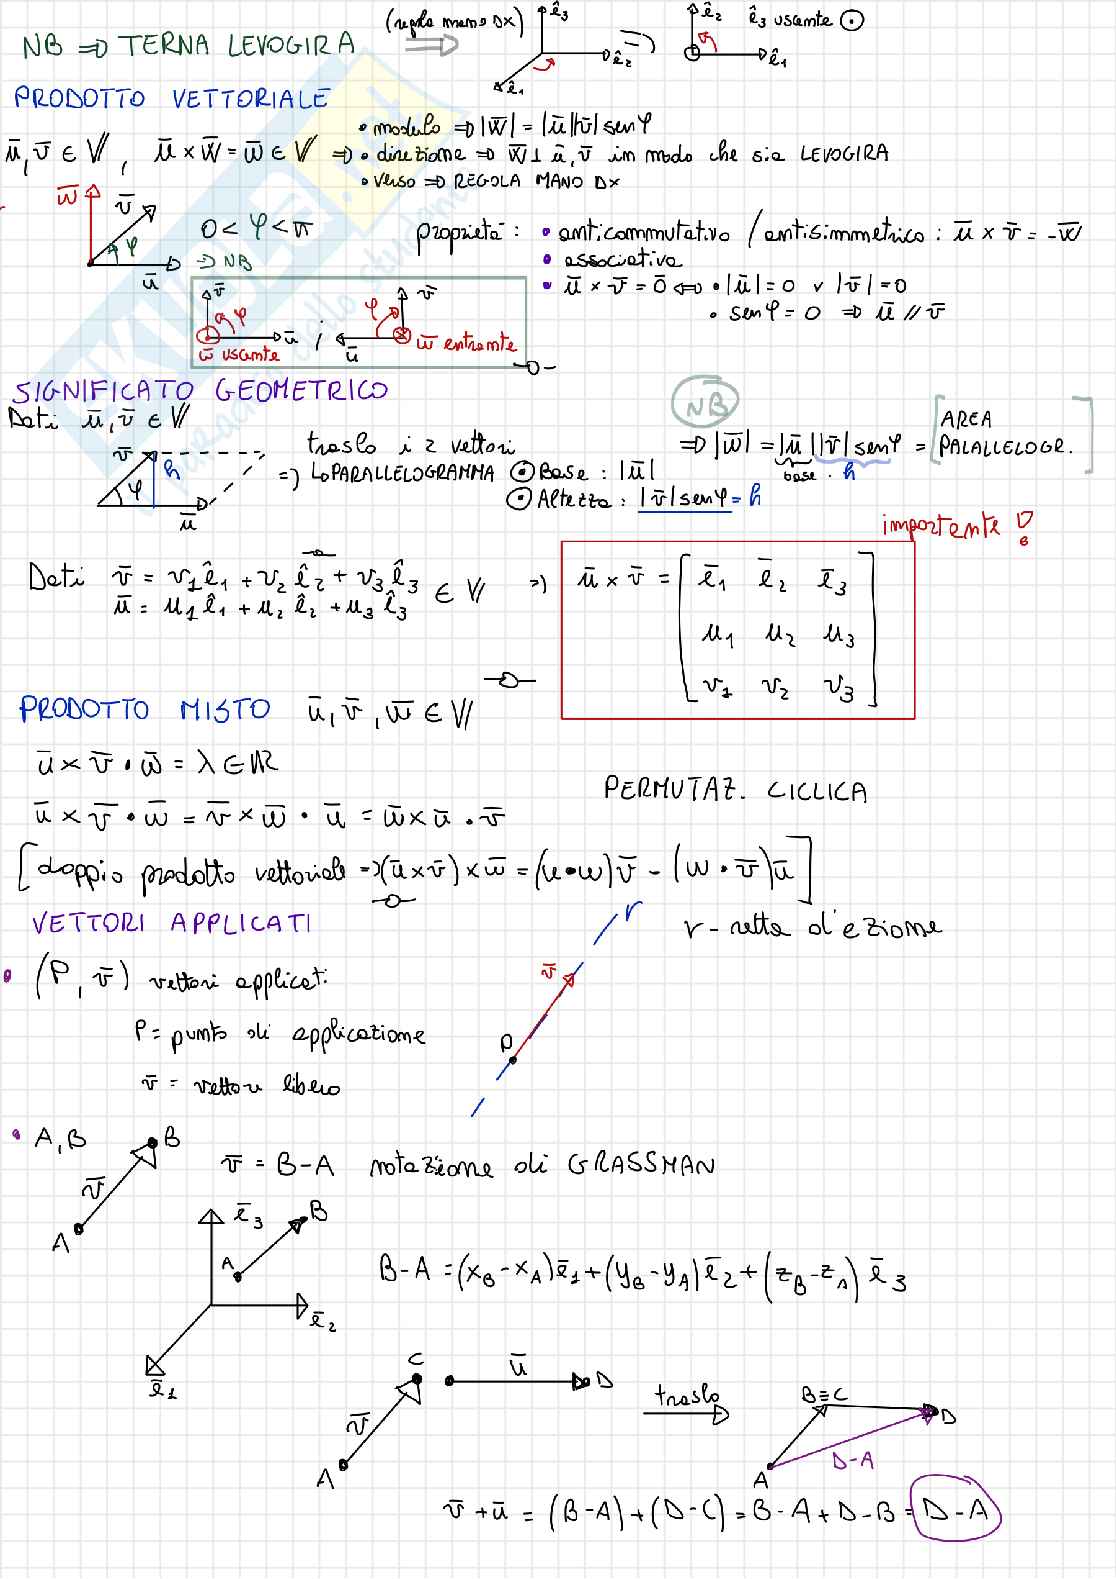 NB ⇒ TERNA LEVOGIRA ⇒ (regola mano DX) ê3 ê2 ê1 ê2 ê1 ê3 uscente ⊙
PRODOTTO VETTORIALE
• modulo ⇒ |w̅| = |u̅||v̅| senφ
u̅, v̅ ∈ V, u̅ × w̅ = w̅ ∈ V ⇒ • direzione ⇒ w̅ ⊥ u̅, v̅ in modo che sia LEVOGIRA
• verso ⇒ REGOLA MANO DX
w̅ v̅ φ u̅ 0 < φ < π ⇒ NB
proprietà: • anticommutativo / antisimmetrico: u̅ × v̅ = -w̅
• associativa
• u̅ × v̅ = 0̅ ⇔ • |u̅| = 0 ∨ |v̅| = 0
• senφ = 0 ⇒ u̅ // v̅
v̅ φ u̅ w̅ uscente ; v̅ φ u̅ w̅ entrante
SIGNIFICATO GEOMETRICO
Dati u̅, v̅ ∈ V
v̅ h φ u̅
traslo i 2 vettori
=) ↳ PARALLELOGRAMMA ⊙ Base: |u̅|
⊙ Altezza: |v̅| senφ = h
NB
⇒ |w̅| = |u̅||v̅| senφ = [AREA PALALLELOGR.]
base · h
importante !
Dati v̅ = v1ê1 + v2ê2 + v3ê3
u̅ = u1ê1 + u2ê2 + u3ê3 ∈ V =)
u̅ × v̅ = [e̅1 e̅2 e̅3
u1 u2 u3
v1 v2 v3]
PRODOTTO MISTO u̅, v̅, w̅ ∈ V
u̅ × v̅ • w̅ = λ ∈ ℝ
PERMUTAZ. CICLICA
u̅ × v̅ • w̅ = v̅ × w̅ • u̅ = w̅ × u̅ • v̅
[doppio prodotto vettoriale => (u̅ × v̅) × w̅ = (u • w) v̅ - (w • v̅) u̅]
VETTORI APPLICATI
r
r - retta d'azione
• (P, v̅) vettori applicati
v̅
P = punto di applicazione
P
v̅ = vettore libero
• A, B
B v̅ A
v̅ = B-A notazione di GRASSMAN
e̅3 B A e̅2 e̅1
B-A = (xB - xA) e̅1 + (yB - yA) e̅2 + (zB - zA) e̅3
C v̅ A u̅ D
traslo
B≡C D D-A A
v̅ + u̅ = (B-A) + (D-C) = B-A + D-B = D-A